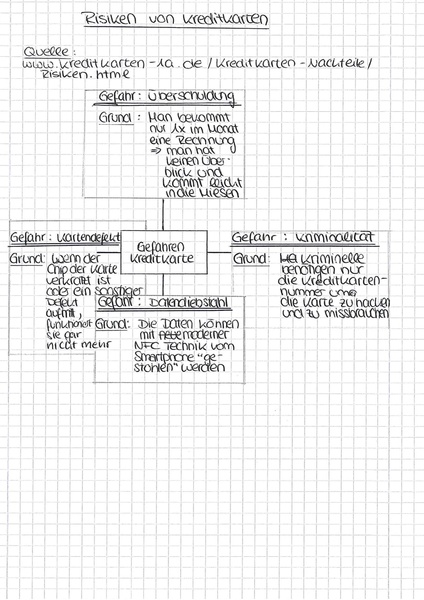 Risiken von Kreditkarten
Quelle:
www.kreditkarten-1a.de/Kreditkarten-Nachteile/
Risiken.html
Gefahr: Überschuldung
Grund: Man bekommt
nur 1x im Monat
eine Rechnung
⇒ man hat
keinen Über-
blick und
kommt leicht
in die Miesen
Gefahren
Kreditkarte
Gefahr: Kartendefekt
Grund: Wenn der
Chip der Karte
verkratzt ist
oder ein sonstiger
Defekt
auftritt,
funktioniert
sie gar
nicht mehr
Gefahr: Kriminalität
Grund: Kriminelle
benötigen nur
die Kreditkarten-
nummer um
die Karte zu hacken
und zu missbrauchen
Gefahr: Datendiebstahl
Grund: Die Daten können
mit moderner
NFC Technik vom
Smartphone "ge-
stohlen" werden